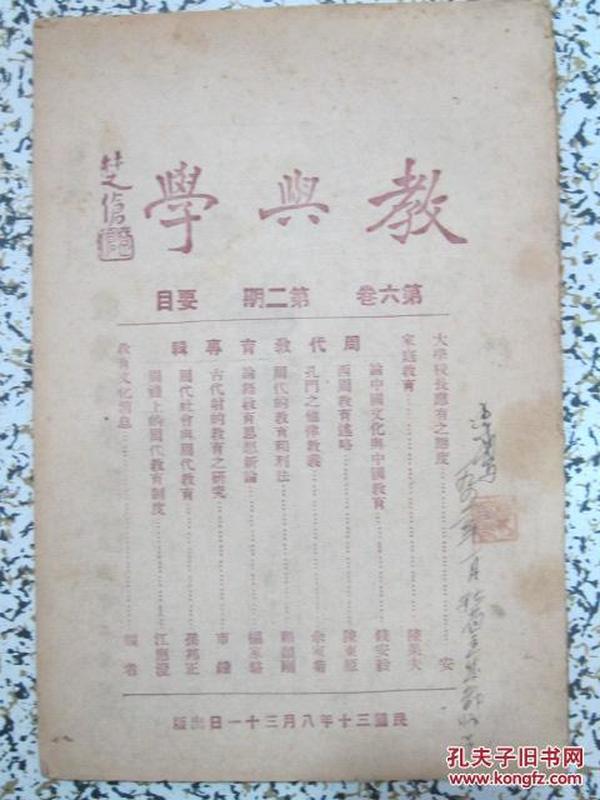 教與學
楚傖
第六卷 第二期 要目
大學校長應有之態度 安
家庭教育 陳美夫
論中國文化與中國教育 錢安毅
周代教育專輯
西周教育述略 陳東原
孔門之戒律教義 余家菊
周代的教育與刑法
論語教育思想新論 楊家駱
古代射的教育之研究
周代社會與周代教育 孫邦正
周禮上的周代教育制度 江應澄
教育文化消息 編者
民國三十年八月三十一日出版
孔夫子旧书网
www.kongfz.com